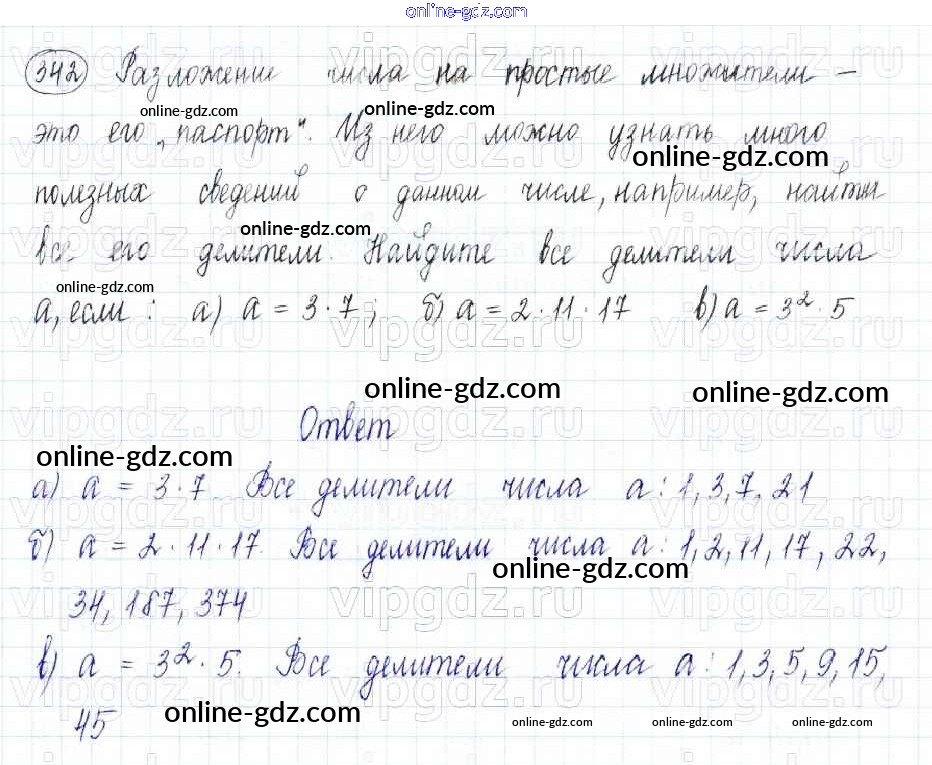 online-gdz.com
342 Разложение числа на простые множители –
online-gdz.com online-gdz.com
это его „паспорт“. Из него можно узнать много
online-gdz.com
полезных сведений о данном числе, например, найти
online-gdz.com
все его делители. Найдите все делители числа
online-gdz.com
а, если: а) а = 3·7; б) а = 2·11·17 в) а = 3²·5
online-gdz.com online-gdz.com
Ответ
online-gdz.com
а) а = 3·7 Все делители числа а: 1, 3, 7, 21
б) а = 2·11·17. Все делители числа а: 1, 2, 11, 17, 22,
online-gdz.com
34, 187, 374
в) а = 3²·5. Все делители числа а: 1, 3, 5, 9, 15,
45
online-gdz.com online-gdz.com online-gdz.com online-gdz.com
vipgdz.ru